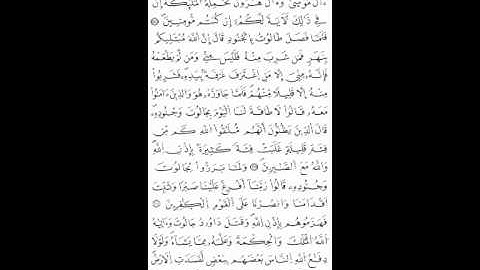 ءَالُ مُوسَىٰ وَءَالُ هَٰرُونَ تَحْمِلُهُ الْمَلَٰٓئِكَةُ إِنَّ
فِي ذَٰلِكَ لَأٓيَةً لَّكُمْ إِن كُنتُم مُّؤْمِنِينَ
فَلَمَّا فَصَلَ طَالُوتُ بِالْجُنُودِ قَالَ إِنَّ اللَّهَ مُبْتَلِيكُم
بِنَهَرٍ فَمَن شَرِبَ مِنْهُ فَلَيْسَ مِنِّي وَمَن لَّمْ يَطْعَمْهُ
فَإِنَّهُ مِنِّي إِلَّا مَنِ اغْتَرَفَ غُرْفَةً بِيَدِهِ فَشَرِبُوا
مِنْهُ إِلَّا قَلِيلًا مِّنْهُمْ فَلَمَّا جَاوَزَهُ هُوَ وَالَّذِينَ ءَامَنُوا
مَعَهُ قَالُوا لَا طَاقَةَ لَنَا الْيَوْمَ بِجَالُوتَ وَجُنُودِهِ
قَالَ الَّذِينَ يَظُنُّونَ أَنَّهُم مُّلَٰقُوا اللَّهِ كَم مِّن
فِئَةٍ قَلِيلَةٍ غَلَبَتْ فِئَةً كَثِيرَةً بِإِذْنِ اللَّهِ
وَاللَّهُ مَعَ الصَّٰبِرِينَ وَلَمَّا بَرَزُوا لِجَالُوتَ
وَجُنُودِهِ قَالُوا رَبَّنَا أَفْرِغْ عَلَيْنَا صَبْرًا وَثَبِّتْ
أَقْدَامَنَا وَانصُرْنَا عَلَى الْقَوْمِ الْكَٰفِرِينَ
فَهَزَمُوهُم بِإِذْنِ اللَّهِ وَقَتَلَ دَاوُدُ جَالُوتَ وَءَاتَىٰهُ
اللَّهُ الْمُلْكَ وَالْحِكْمَةَ وَعَلَّمَهُ مِمَّا يَشَآءُ وَلَوْلَا
دَفْعُ اللَّهِ النَّاسَ بَعْضَهُم بِبَعْضٍ لَّفَسَدَتِ الْأَرْضُ